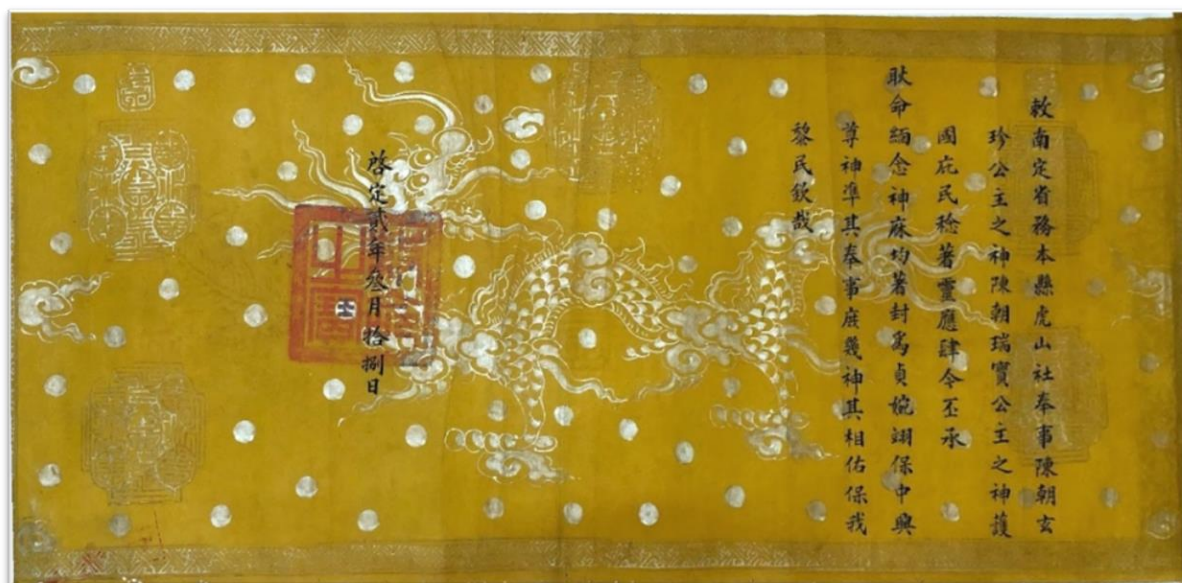 敕南定省務本縣虎山社奉事陳朝玄
珍公主之神陳朝瑞寶公主之神護
國庇民稔著靈應肆今丕承
耿命緬念神庥均著封爲貞婉翊保中興
尊神準其奉事庶幾神其相佑保我
黎民欽哉
啓定貳年叄月拾捌日